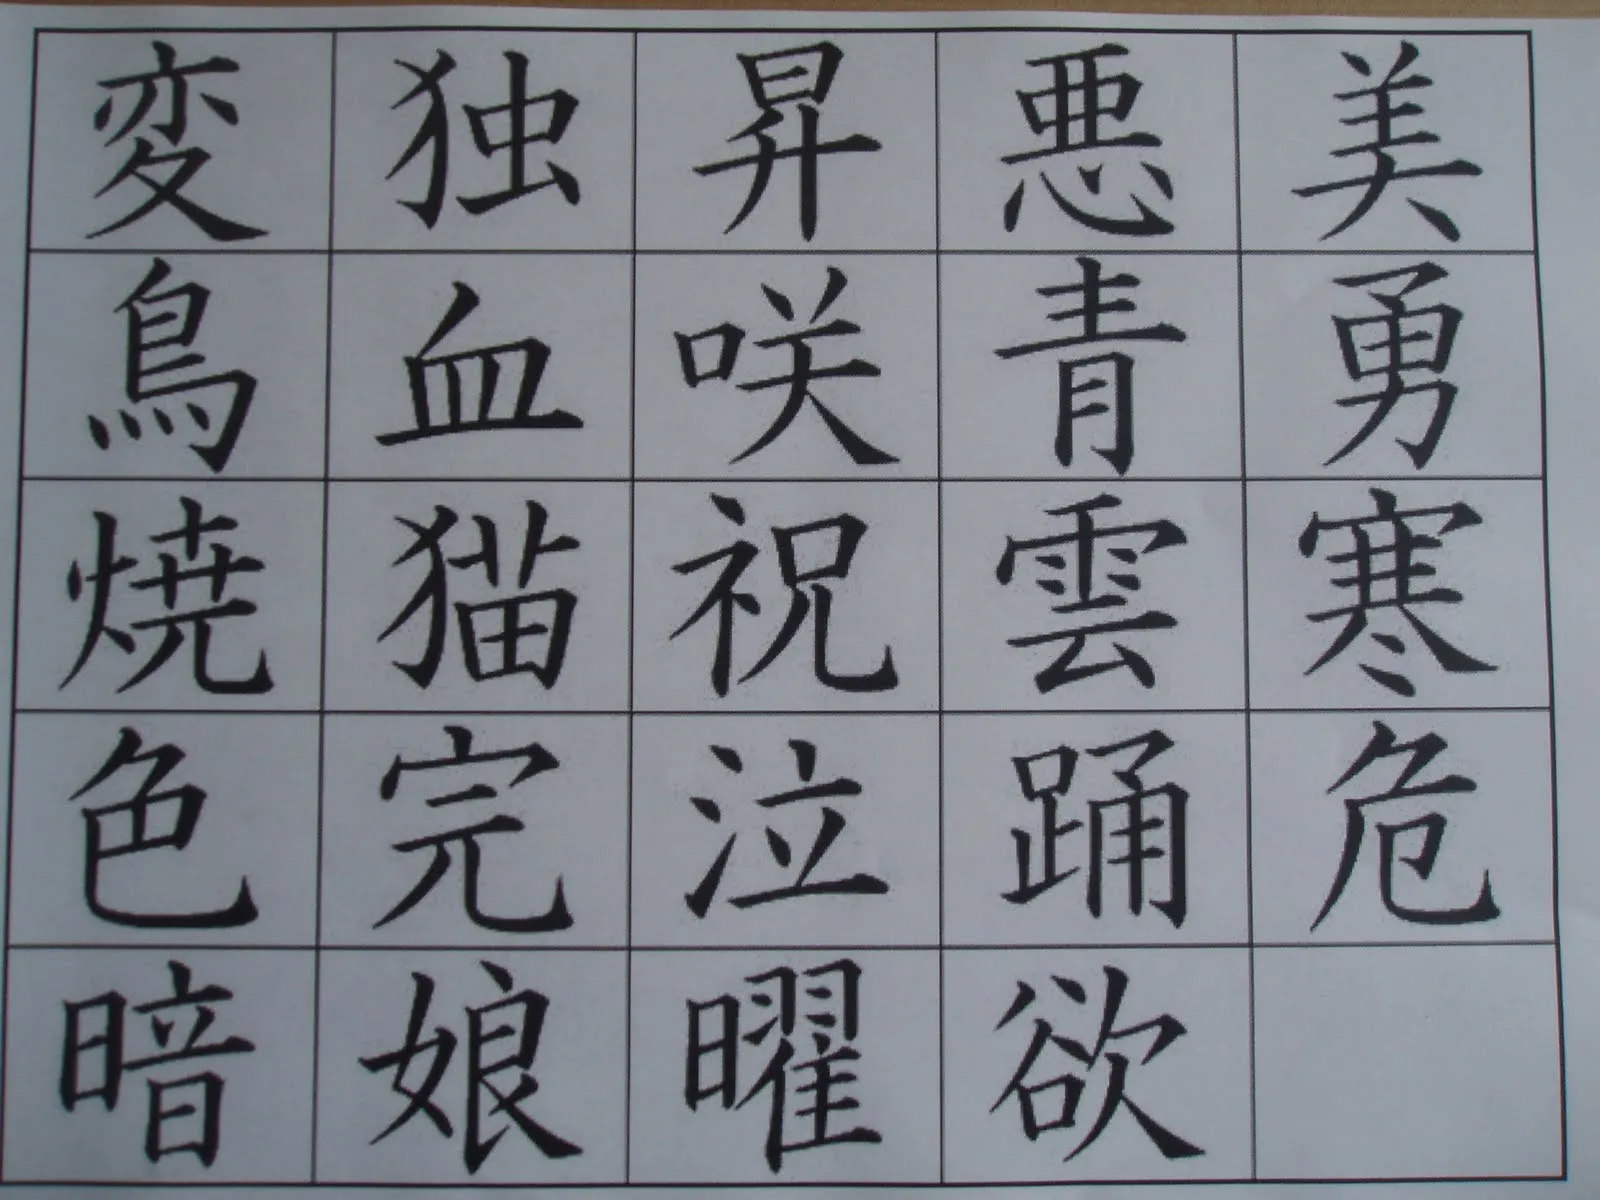 変 独 昇 悪 美
鳥 血 咲 青 勇
焼 猫 祝 雲 寒
色 完 泣 踊 危
暗 娘 曜 欲